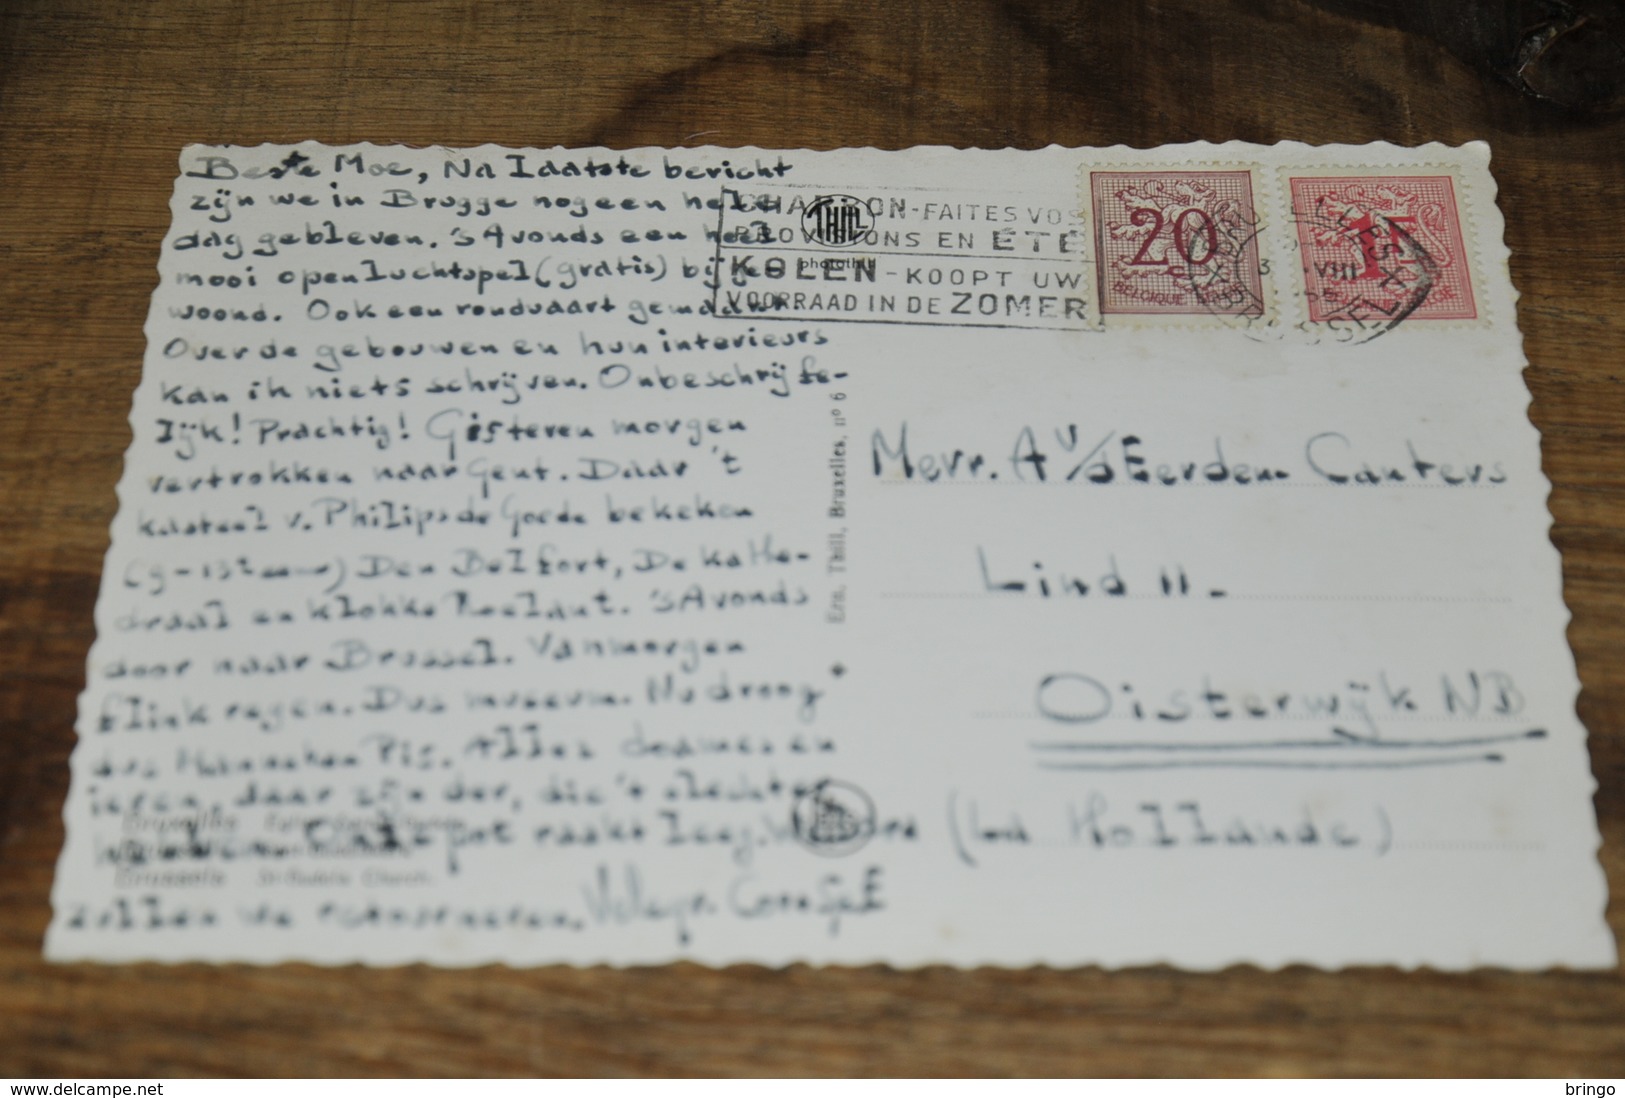 Beste Moe, Na laatste bericht
zijn we in Brugge nog een hele
dag gebleven. 's Avonds een heel
mooi openluchtspel (gratis) bijge-
woond. Ook een rondvaart gemaakt.
Over de gebouwen en hun interieurs
kan ik niets schrijven. Onbeschrijfe-
lijk! Prachtig! Gisteren morgen
vertrokken naar Gent. Daar 't
kasteel v. Philips de Goede bekeken
(9-13e eeuw) Den Belfort, De Kathe-
draal en klokke Roelant. 's Avonds
door naar Brussel. Vanmorgen
flink regen. Dus museum. Nu droog
dus Manneken Pis. Alles
daar zijn der, die 't slechter
pot raakt leeg.
zullen we
CHARBON-FAITES VOS
PROVISIONS EN ÉTÉ
KOLEN - KOOPT UW
VOORRAAD IN DE ZOMER
THILL
photothill
20
BELGIQUE
BRUXELLES X
3 VIII
BRUSSEL X
Ern. Thill, Bruxelles, nº 6
Merr. A v/d Eerdem Canters
Lind 11.
Oisterwijk NB
(La Hollande)
Bruxelles
Brussels St-Gudula Church.
delcampe.net
bringo